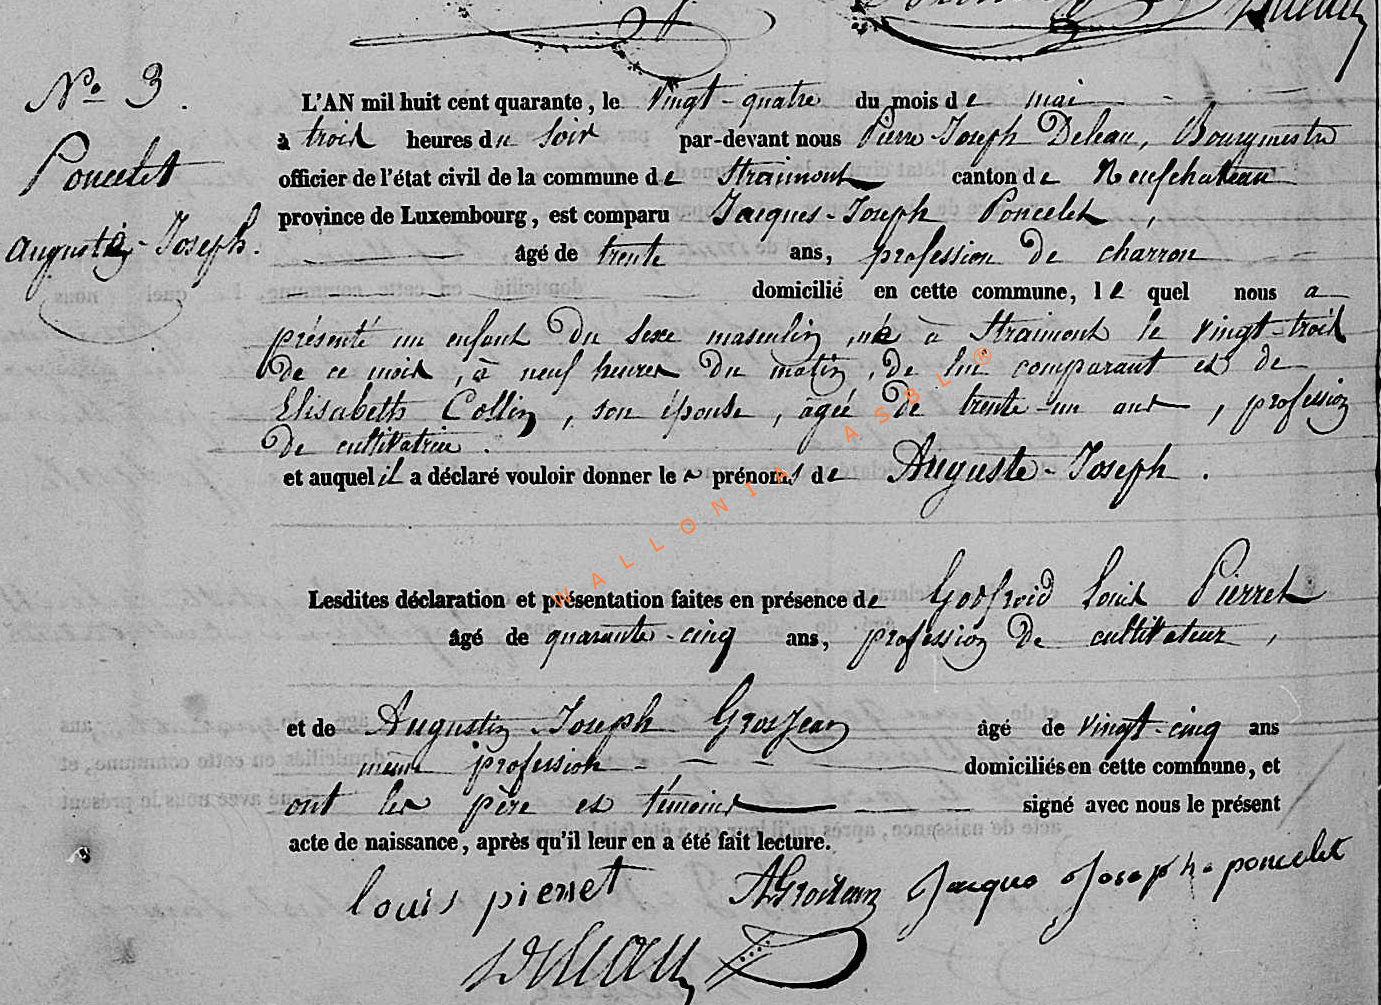 No 3.
Poncelet
Auguste-Joseph.
L'AN mil huit cent quarante, le vingt-quatre du mois de mai
à trois heures du soir par-devant nous Pierre-Joseph Deleau, Bourgmestre
officier de l'état civil de la commune de Straimont canton de Neufchateau
province de Luxembourg, est comparu Jacques-Joseph Poncelet,
âgé de trente ans, profession de charron
domicilié en cette commune, lequel nous a
présenté un enfant du sexe masculin, né à Straimont le vingt-trois
de ce mois, à neuf heures du matin, de lui comparant et de
Elisabeth Collin, son épouse, agée de trente-un ans, profession
de cultivatrice.
et auquel il a déclaré vouloir donner les prénoms de Auguste-Joseph.
Lesdites déclaration et présentation faites en présence de Godfroid Louis Pierret
âgé de quarante-cinq ans, profession de cultivateur,
et de Augustin-Joseph Grosjean âgé de vingt-cinq ans
même profession domiciliés en cette commune, et
ont les père et témoins signé avec nous le présent
acte de naissance, après qu'il leur en a été fait lecture.
louis pierret AGrosjean Jacque Joseph poncelet
Deleau
WALLONIA ASBL ®